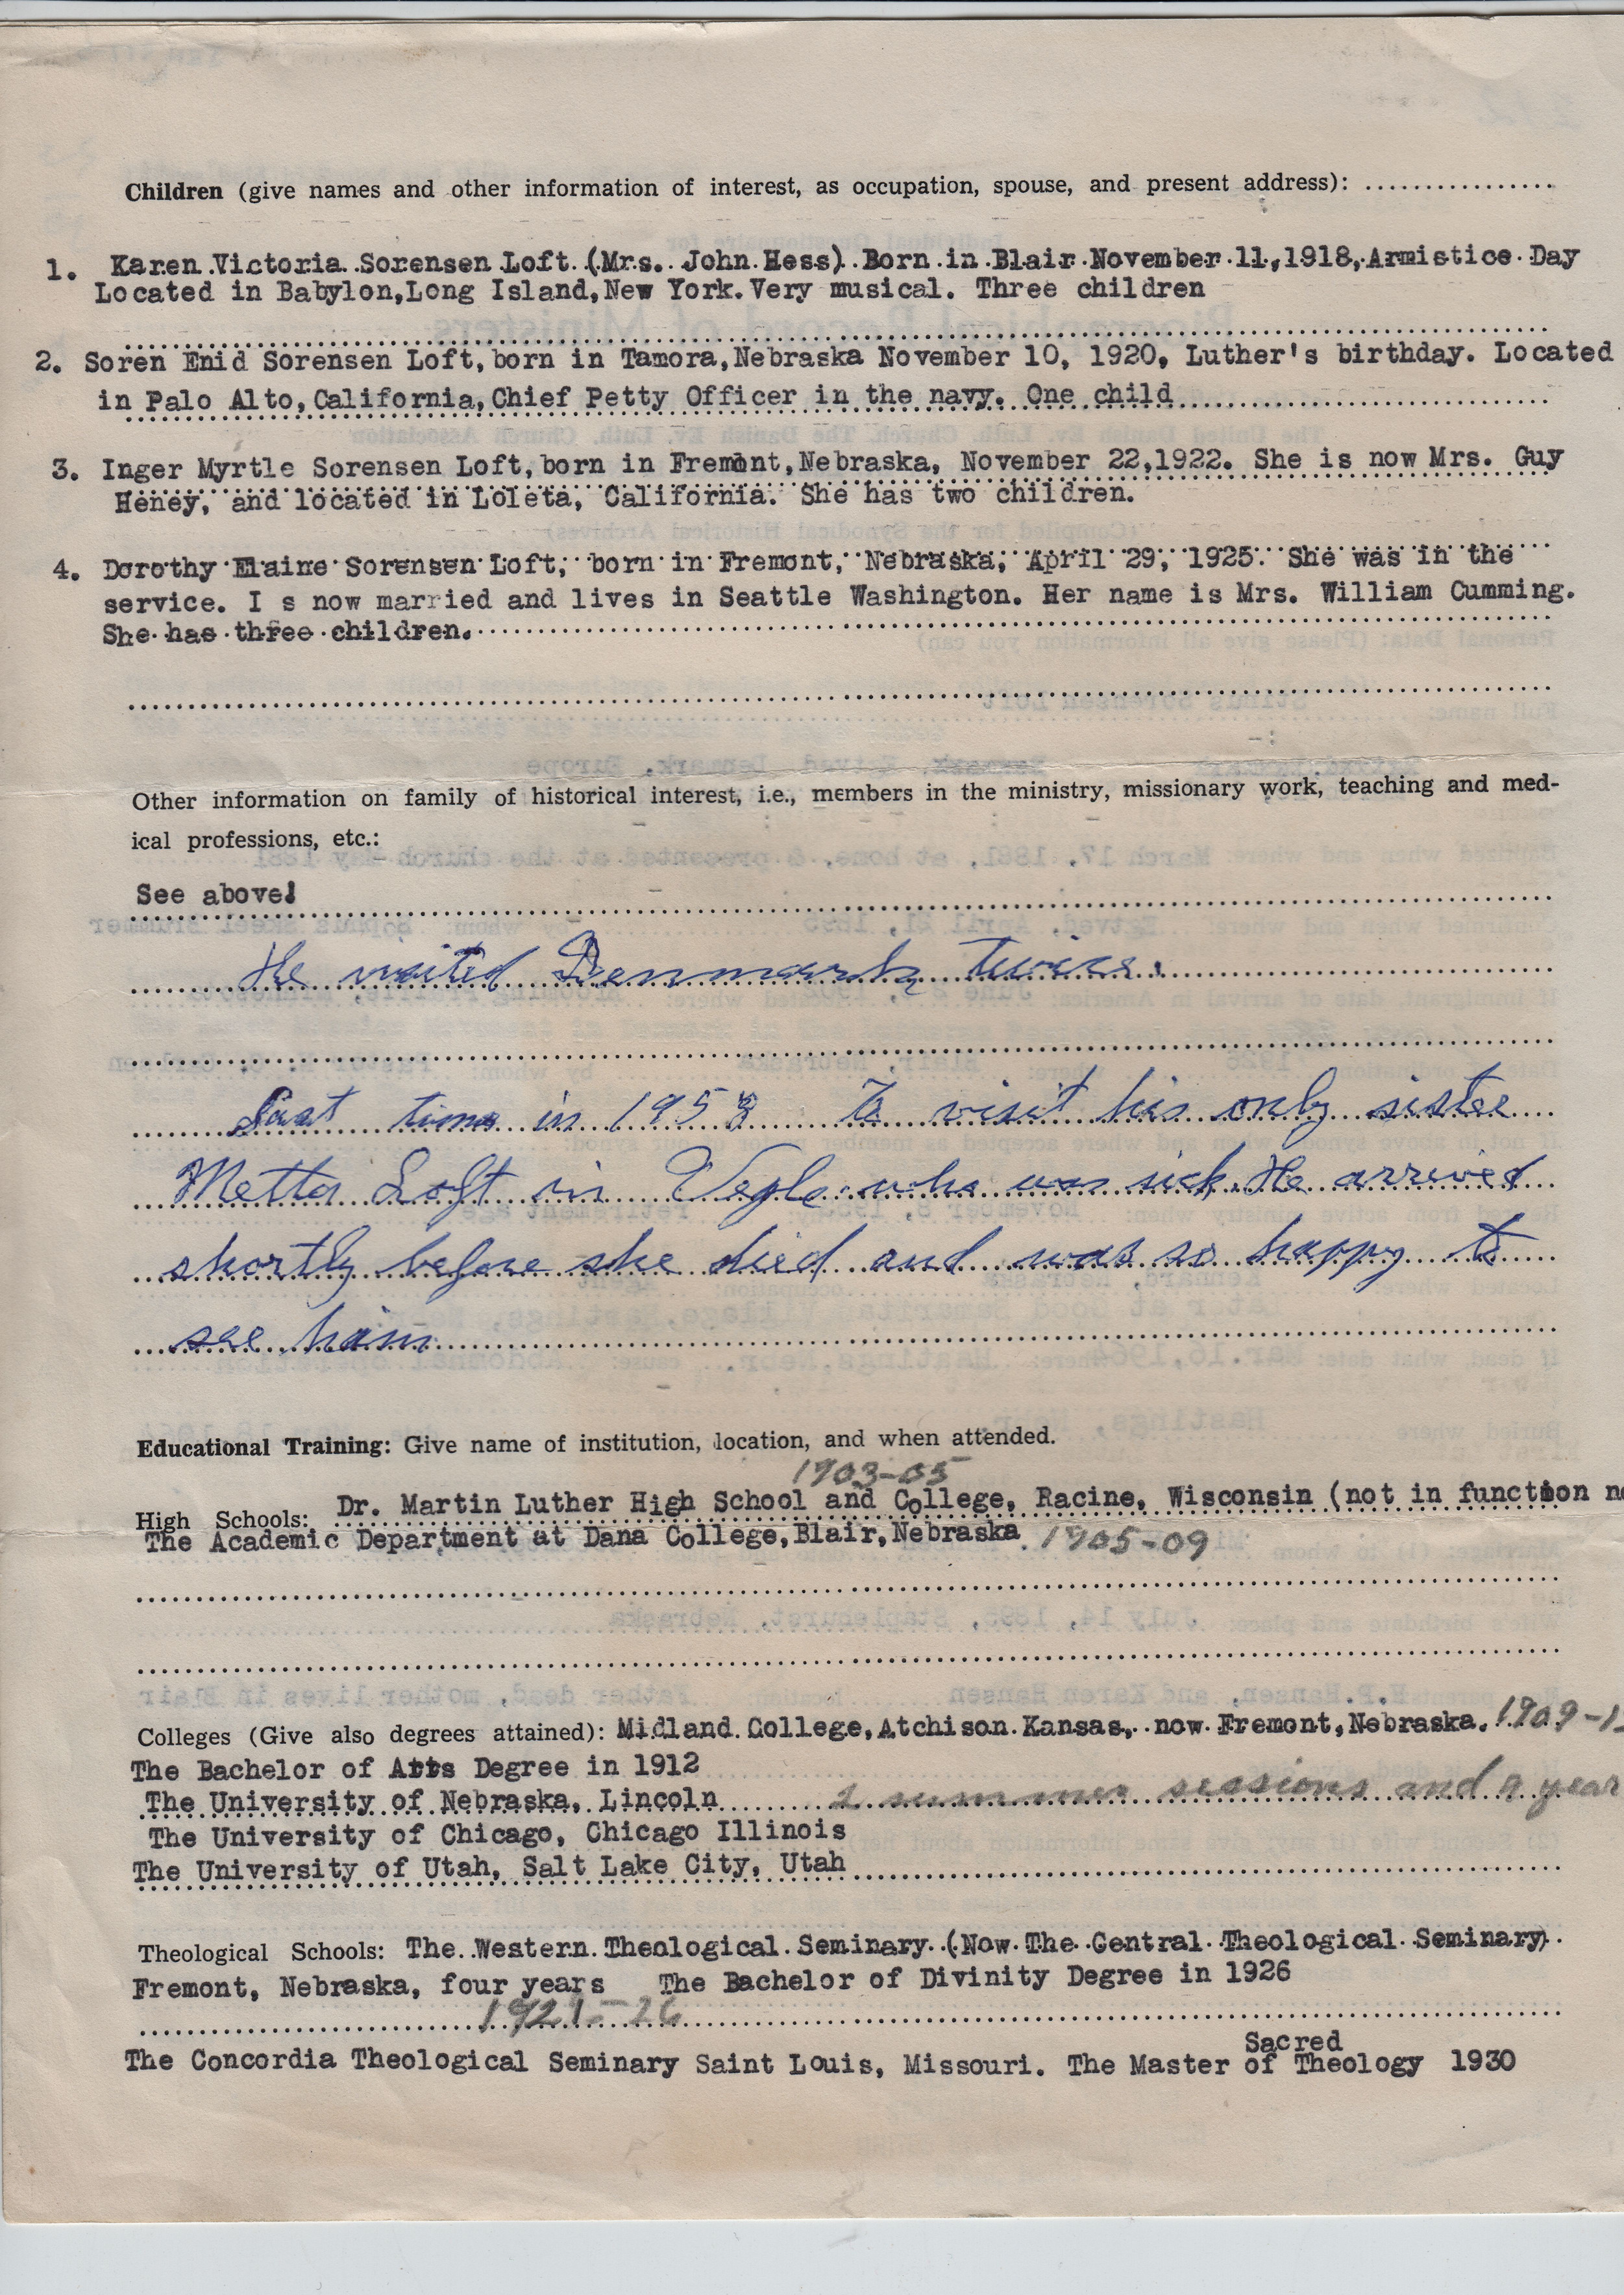 Children (give names and other information of interest, as occupation, spouse, and present address):
1. Karen Victoria Sorensen Loft (Mrs. John Hess) Born in Blair November 11, 1918, Armistice Day
Located in Babylon,Long Island,New York.Very musical. Three children
2. Soren Enid Sorensen Loft,born in Tamora,Nebraska November 10, 1920, Luther's birthday. Located
in Palo Alto,California,Chief Petty Officer in the navy. One child
3. Inger Myrtle Sorensen Loft,born in Fremont,Nebraska, November 22,1922. She is now Mrs. Guy
Heney, and located in Loleta, California. She has two children.
4. Dorothy Elaine Sorensen Loft, born in Fremont, Nebraska, April 29, 1925. She was in the
service. I s now married and lives in Seattle Washington. Her name is Mrs. William Cumming.
She has three children.
Other information on family of historical interest, i.e., members in the ministry, missionary work, teaching and med-
ical professions, etc.:
See above!
He visited Denmark twice.
Last time in 1953 To visit his only sister
Metta Loft in Vejle who was sick. He arrived
shortly before she died and was so happy to
see him
Educational Training: Give name of institution, location, and when attended.
1903-05
High Schools: Dr. Martin Luther High School and College, Racine, Wisconsin (not in function
The Academic Department at Dana College,Blair,Nebraska. 1905-09
Colleges (Give also degrees attained): Midland College,Atchison Kansas, now Fremont,Nebraska. 1909-
The Bachelor of Arts Degree in 1912
The University of Nebraska, Lincoln 2 summer sessions and a year
The University of Chicago, Chicago Illinois
The University of Utah, Salt Lake City, Utah
Theological Schools: The Western Theological Seminary (Now The Central Theological Seminary)
Fremont, Nebraska, four years The Bachelor of Divinity Degree in 1926
1921-26
Sacred
The Concordia Theological Seminary Saint Louis, Missouri. The Master of Theology 1930